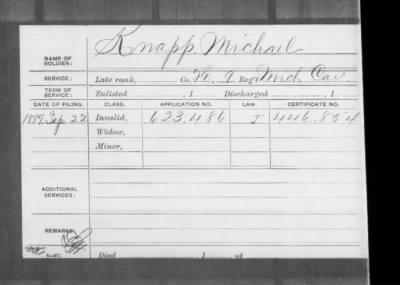 NAME OF
SOLDIER:
Knapp Michael
SERVICE:
Late rank, Co. 9 Reg't Mich Cav.
TERM OF
SERVICE:
Enlisted , 1 Discharged , 1
DATE OF FILING. CLASS. APPLICATION NO. LAW. CERTIFICATE NO.
1887 Sep 22 Invalid, 623,486 J 446,854
Widow,
Minor,
ADDITIONAL
SERVICES:
REMARKS:
Died , 1 , at